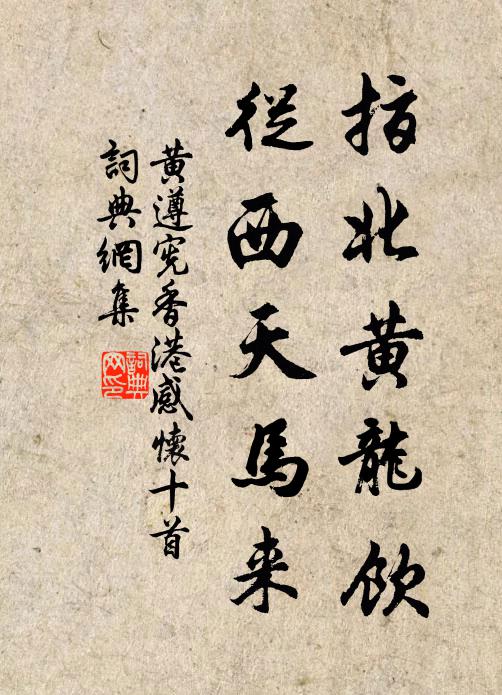 指北黄龍飲
從西天馬来
黄遵宪香港感懷十首
詞典網集
詞典
网印